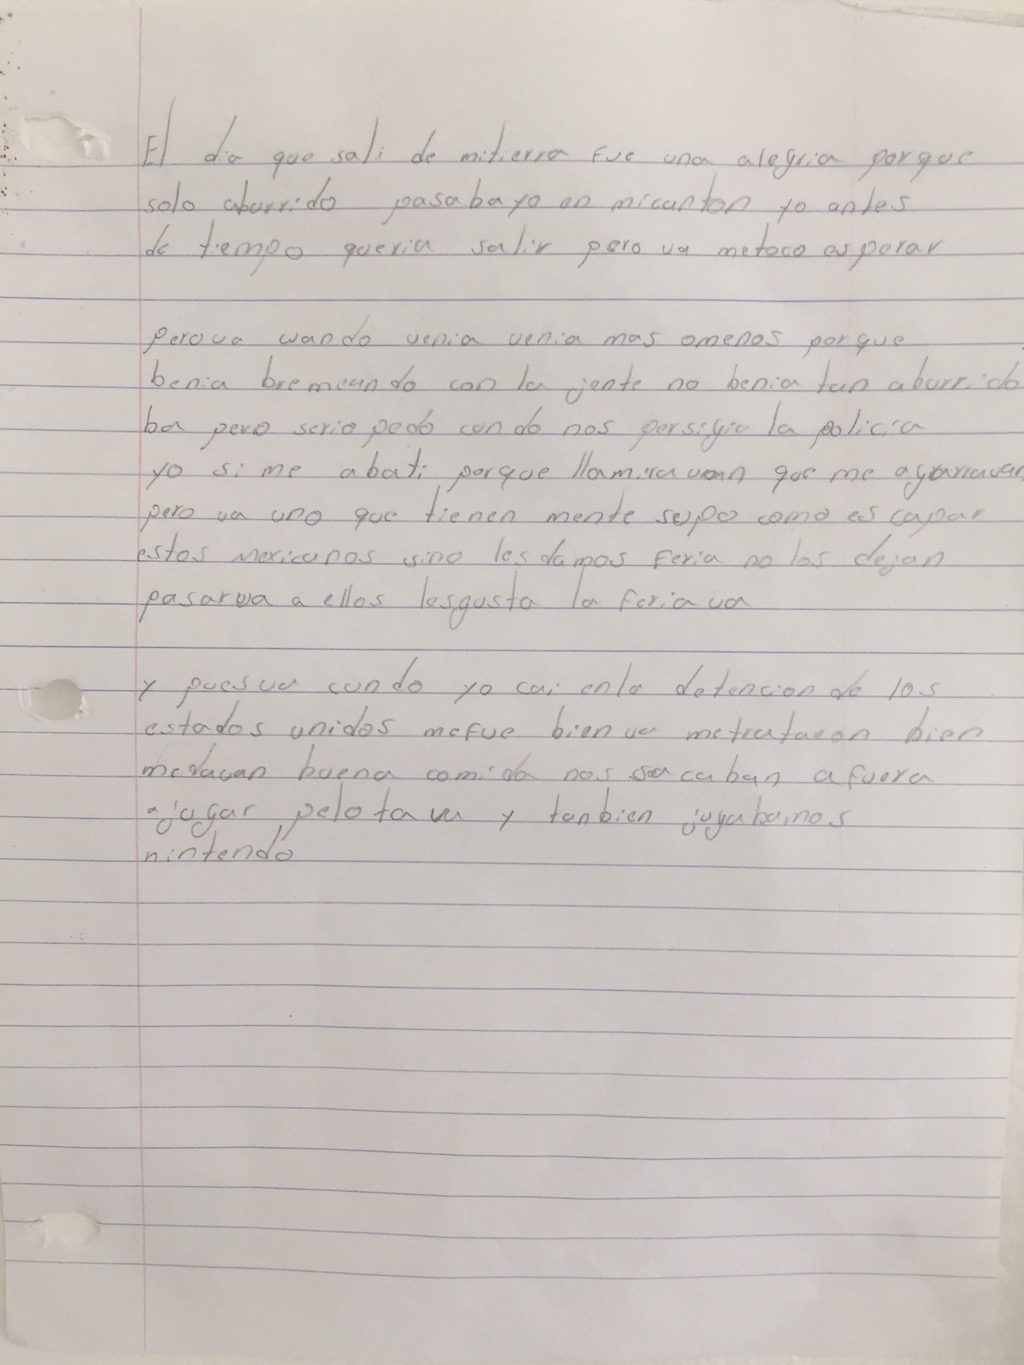 El dia que sali de mitierra fue una alegria porque
solo aburrido pasabayo en micanton yo antes
de tiempo queria salir pero va metoco esperar
Perova cuando venia venia mas omenos porque
benia bremeando con la jente no benia tan aburrido
ba pero serio pedo cundo nos persigia la policia
yo si me abati porque llamiravan que me agarravan
pero va uno que tienen mente supo como es capar
estos mexicanos sino lesdamos feria no los dejan
pasarva a ellos lesgusta la feria va
y puesva cundo yo cai enla detencion de los
estados unidos mefue bien va metrataron bien
medavan buena comida nos sacaban afuera
ajugar pelota va y tanbien jugabamos
nintendo